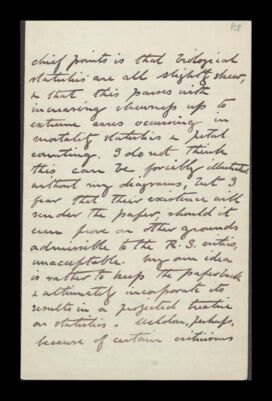 chief points is that biological
statistics are all slightly skew,
& that this passes with
increasing skewness up to
extreme cases occurring in
mortality statistics & petal
counting. I do not think
this can be forcibly illustrated
without my diagrams, but I
fear that their existence will
render the paper, should it
even prove on other grounds
admissible to the R.S. critics,
unacceptable. My own idea
is rather to keep the paper back
& ultimately incorporate its
results in a projected treatise
on statistics. Weldon, perhaps,
because of certain criticisms